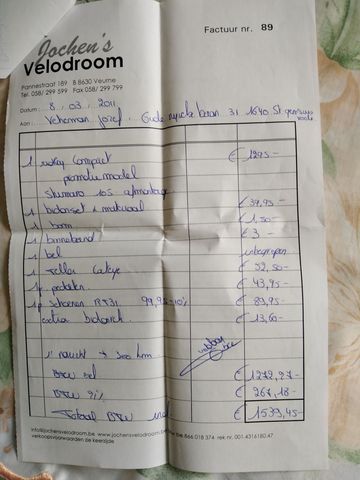 Jochen's
Velodroom
Factuur nr. 89
Pannestraat 189 B 8630 Veurne
Tel. 058/ 299 599 Fax 058/ 299 799
Datum : 8.03.2011
Aan : Veherman Jozef. Oude 31 1640 St
1 compact € 1295-
promotie model
Shimano 105 afmontage
1 bidonset + € 39,95-
1 € 1,50-
1 binnenband € 3-
1 bel inbegrepen
1 teller Cateye € 52,50-
1p pedalen € 43,95-
1p schoenen RT31 99,95-10% € 89,95-
extra € 13,60-
1° 300 km
BTW € 1272,27-
BTW 21% € 267,18-
Totaal BTW incl € 1539,45-
info@jochensvelodroom.be www.jochensvelodroom.be
866 018 374 rek nr. 001.4316180.47
verkoopsvoorwaarden zie keerzijde